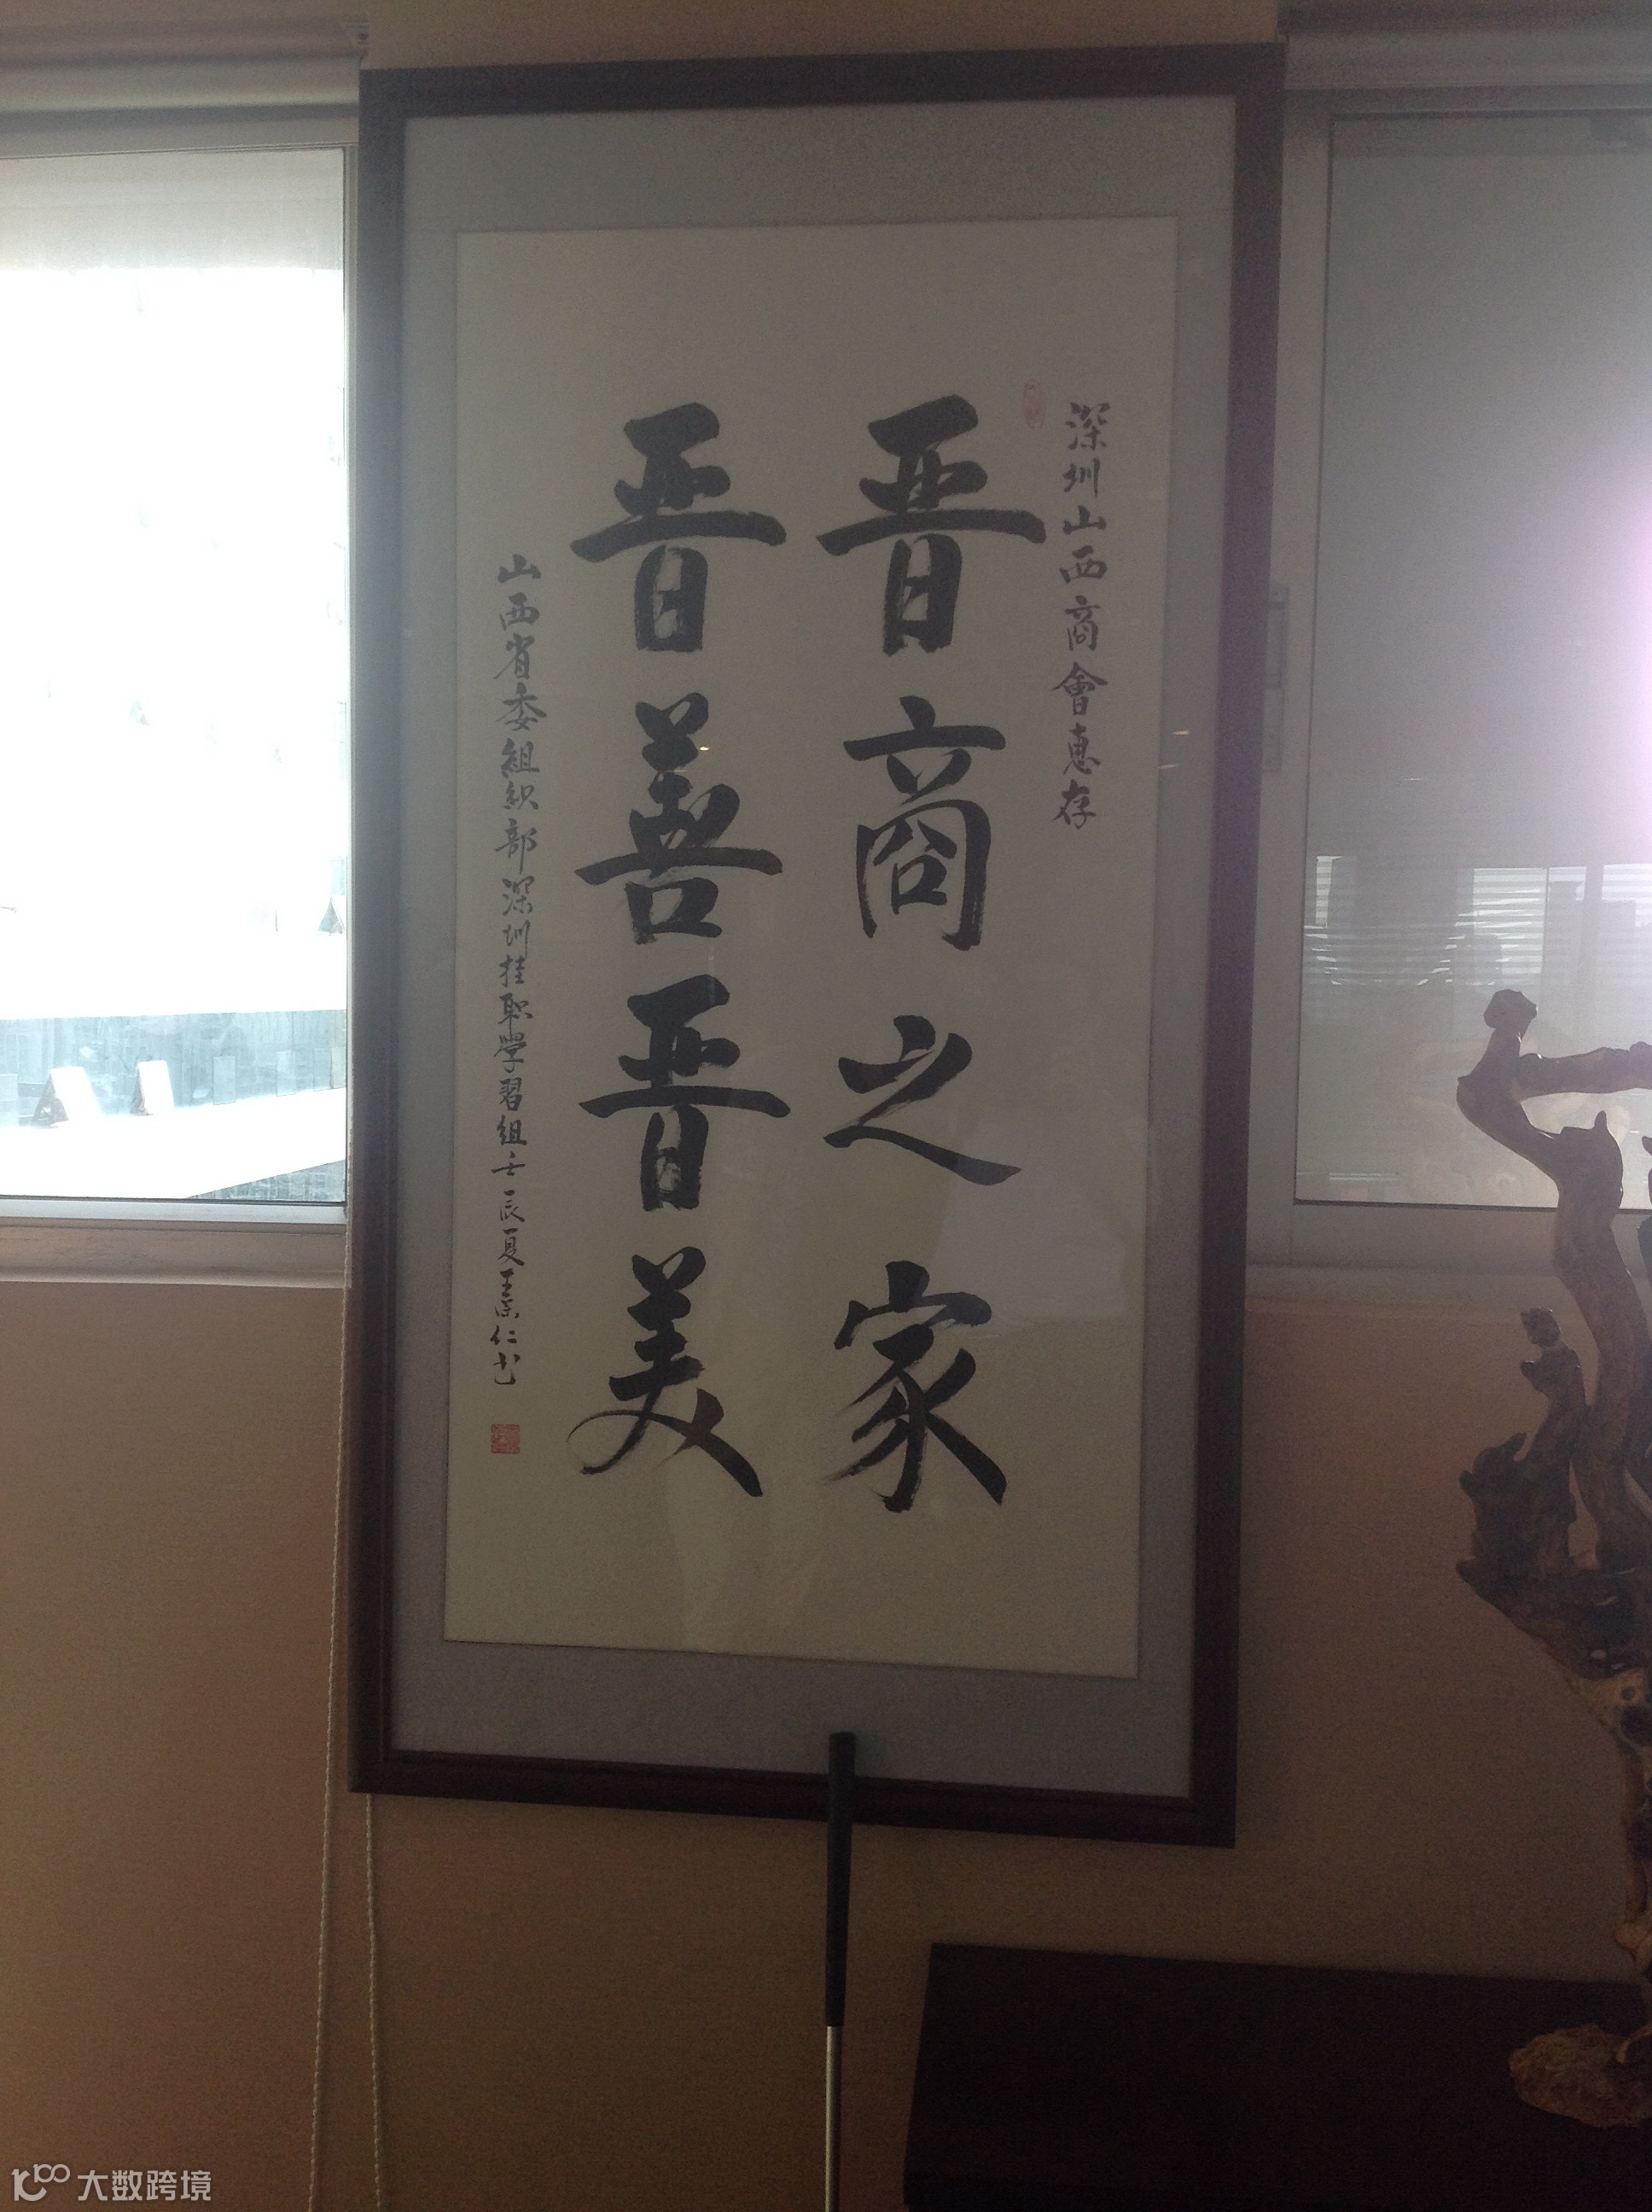 深圳山西商會惠存
晋商之家
晋善晋美
山西省委组织部深圳挂职学習组壬辰夏王荣仁书
大数跨境